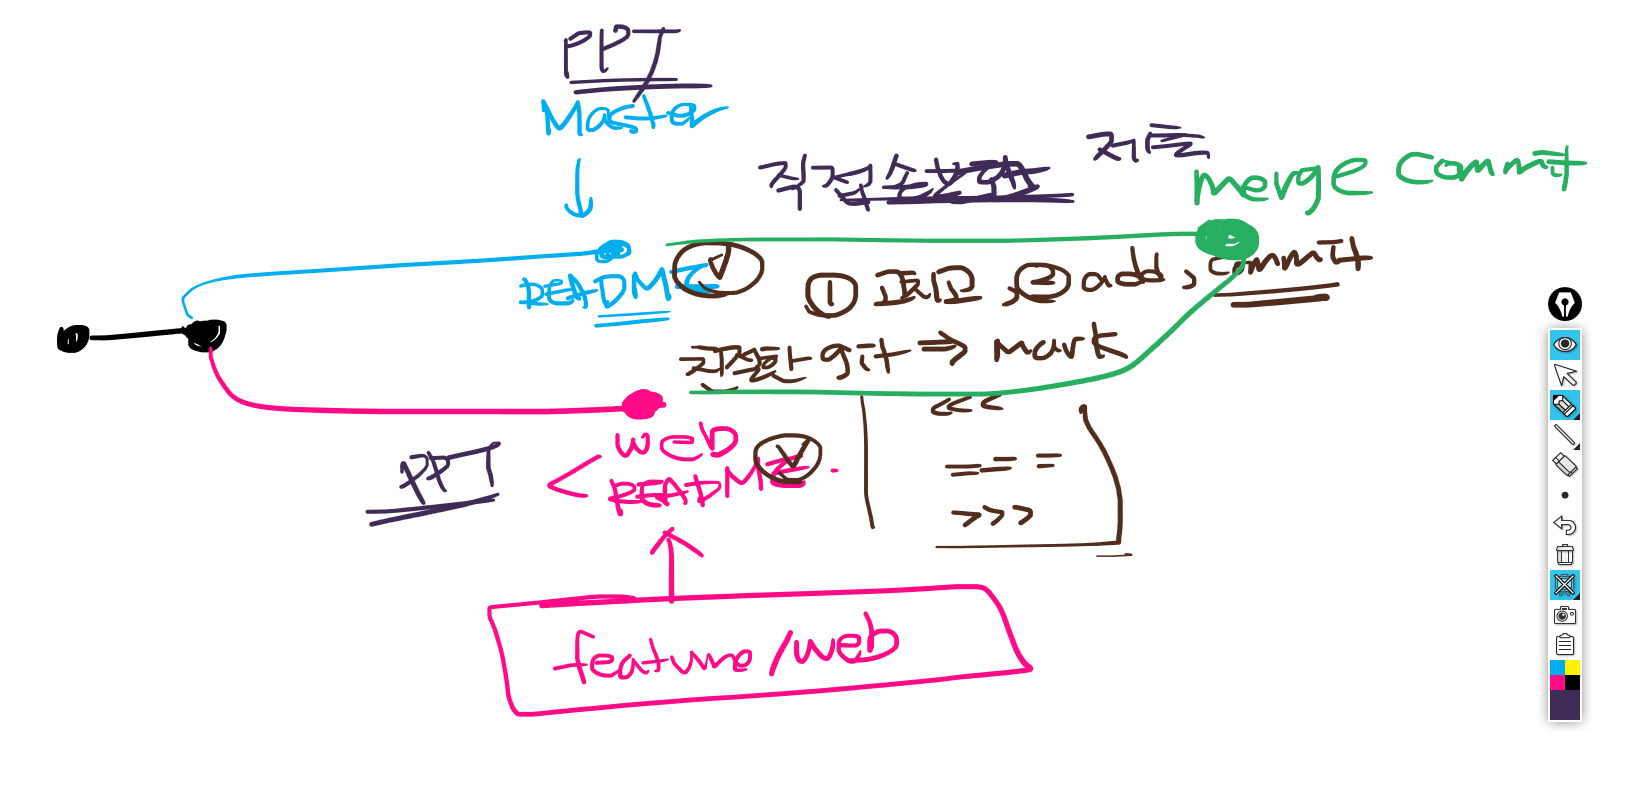 PPT
Master
직접
제출
merge commit
README
① 고치고, ② add, commit
친절한 git ⇒ mark
<<<
====
>>>
web
README
PPT
feature/web